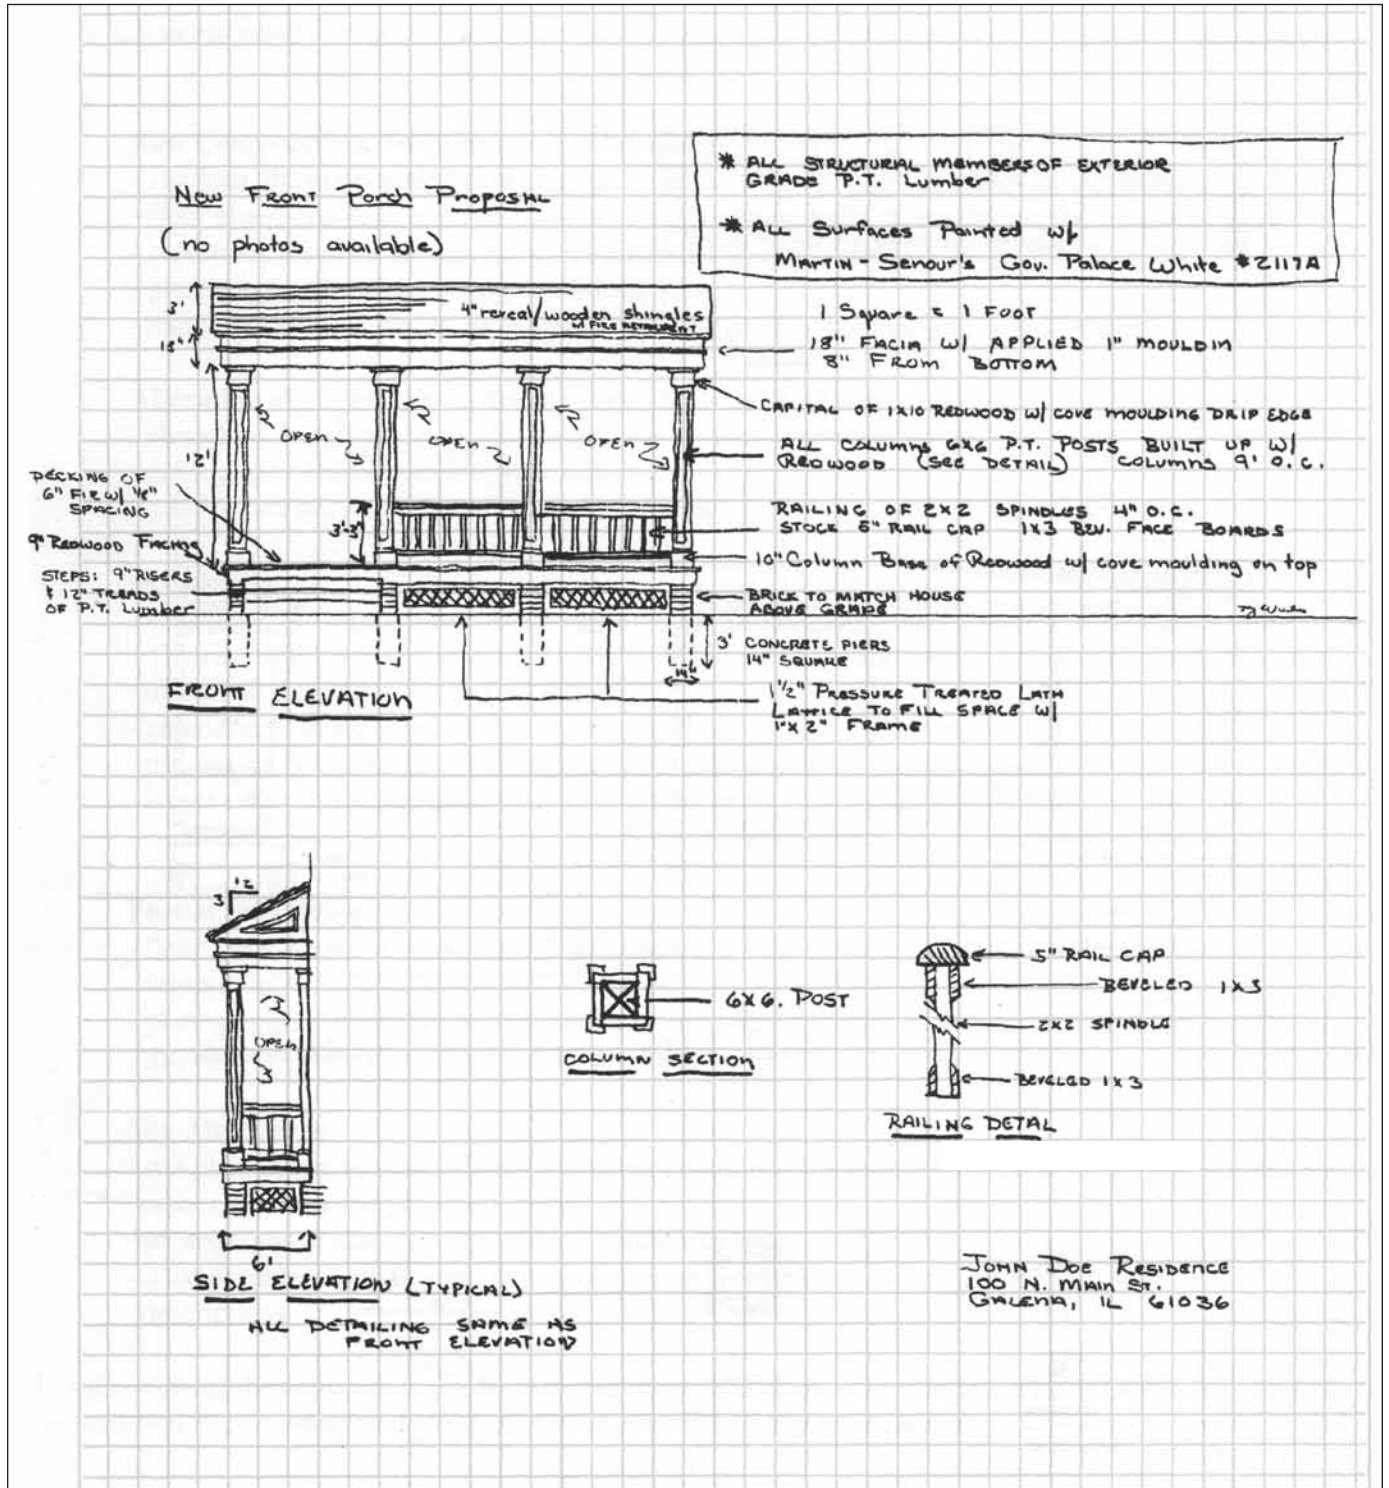 New Front Porch Proposal
(no photos available)
* ALL STRUCTURAL MEMBERS OF EXTERIOR
GRADE P.T. Lumber
* ALL Surfaces Painted w/
MARTIN-Senour's Gov. Palace White #2117A
3'
4" reveal/wooden shingles
w/ FIRE RETARDENT
18"
1 Square = 1 FOOT
18" FACIA W/ APPLIED 1" MOULDIN
8" FROM BOTTOM
CAPITAL OF 1X10 REDWOOD W/ COVE MOULDING DRIP EDGE
OPEN
OPEN
OPEN
12'
ALL COLUMNS 6X6 P.T. POSTS BUILT UP W/
REDWOOD (SEE DETAIL) COLUMNS 9' O.C.
DECKING OF
6" FIR W/ 1/8"
SPACING
3'-3"
RAILING OF 2X2 SPINDLES 4" O.C.
STOCK 5" RAIL CAP 1X3 BEV. FACE BOARDS
9" REDWOOD FACING
10" Column Base of Redwood w/ cove moulding on top
STEPS: 9" RISERS
& 12" TREADS
OF P.T. Lumber
BRICK TO MATCH HOUSE
ABOVE GRADE
3' CONCRETE PIERS
14" SQUARE
14"
1 1/2" PRESSURE TREATED LATH
LATTICE TO FILL SPACE W/
1"X2" FRAME
FRONT ELEVATION
12
3
OPEN
6'
SIDE ELEVATION (TYPICAL)
ALL DETAILING SAME AS
FRONT ELEVATION
6X6. POST
COLUMN SECTION
5" RAIL CAP
BEVELED 1X3
2X2 SPINDLE
BEVELED 1X3
RAILING DETAL
JOHN DOE RESIDENCE
100 N. MAIN ST.
GALENA, IL 61036